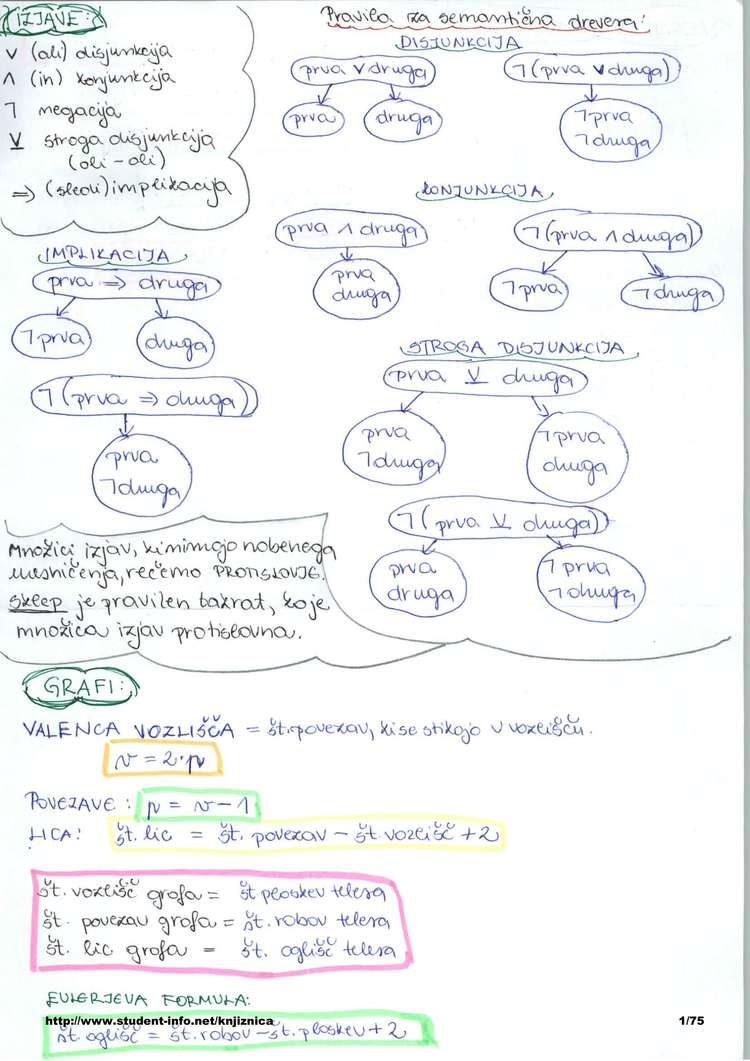 IZJAVE:
∨ (ali) disjunkcija
∧ (in) konjunkcija
⅂ negacija
⊻ stroga disjunkcija
(ali - ali)
⇒ (sledi) implikacija
Pravila za semantična drevesa:
DISJUNKCIJA
prva ∨ druga
prva
druga
⅂(prva ∨ druga)
⅂prva
⅂druga
KONJUNKCIJA
prva ∧ druga
prva
druga
⅂(prva ∧ druga)
⅂prva
⅂druga
IMPLIKACIJA
prva ⇒ druga
⅂prva
druga
⅂(prva ⇒ druga)
prva
⅂druga
STROGA DISJUNKCIJA
prva ⊻ druga
prva
⅂druga
⅂prva
druga
⅂(prva ⊻ druga)
prva
druga
⅂prva
⅂druga
Množici izjav, ki nimajo nobenega
uresničenja, rečemo PROTISLOVJE.
Sklep je pravilen takrat, ko je
množica izjav protislovna.
GRAFI:
VALENCA VOZLIŠČA = št. povezav, ki se stikajo v vozlišču.
v = 2·p
POVEZAVE: p = v - 1
LICA: št. lic = št. povezav - št. vozlišč + 2
št. vozlišč grafa = št. ploskev telesa
št. povezav grafa = št. robov telesa
št. lic grafa = št. oglišč telesa
EULERJEVA FORMULA:
http://www.student-info.net/knjiznica 1/75
št. oglišč = št. robov - št. ploskev + 2